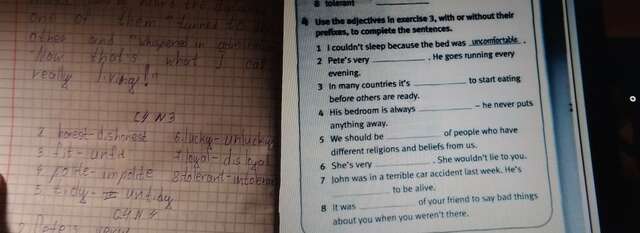 one of them "turned to the
other and "whispered in
"Now that's what I call
really living!"
Ex N3
2. honest-dishonest 6. lucky-unlucky
3. fit-unfit 7. loyal-disloyal
4. polite-impolite 8. tolerant-intolerant
5. tidy- untidy
Ex N4
2. Pete's very
8 tolerant
4 Use the adjectives in exercise 3, with or without their
prefixes, to complete the sentences.
1 I couldn't sleep because the bed was uncomfortable.
2 Pete's very ____________. He goes running every
evening.
3 In many countries it's ____________ to start eating
before others are ready.
4 His bedroom is always ____________ – he never puts
anything away.
5 We should be ____________ of people who have
different religions and beliefs from us.
6 She's very ____________. She wouldn't lie to you.
7 John was in a terrible car accident last week. He's
____________ to be alive.
8 It was ____________ of your friend to say bad things
about you when you weren't there.